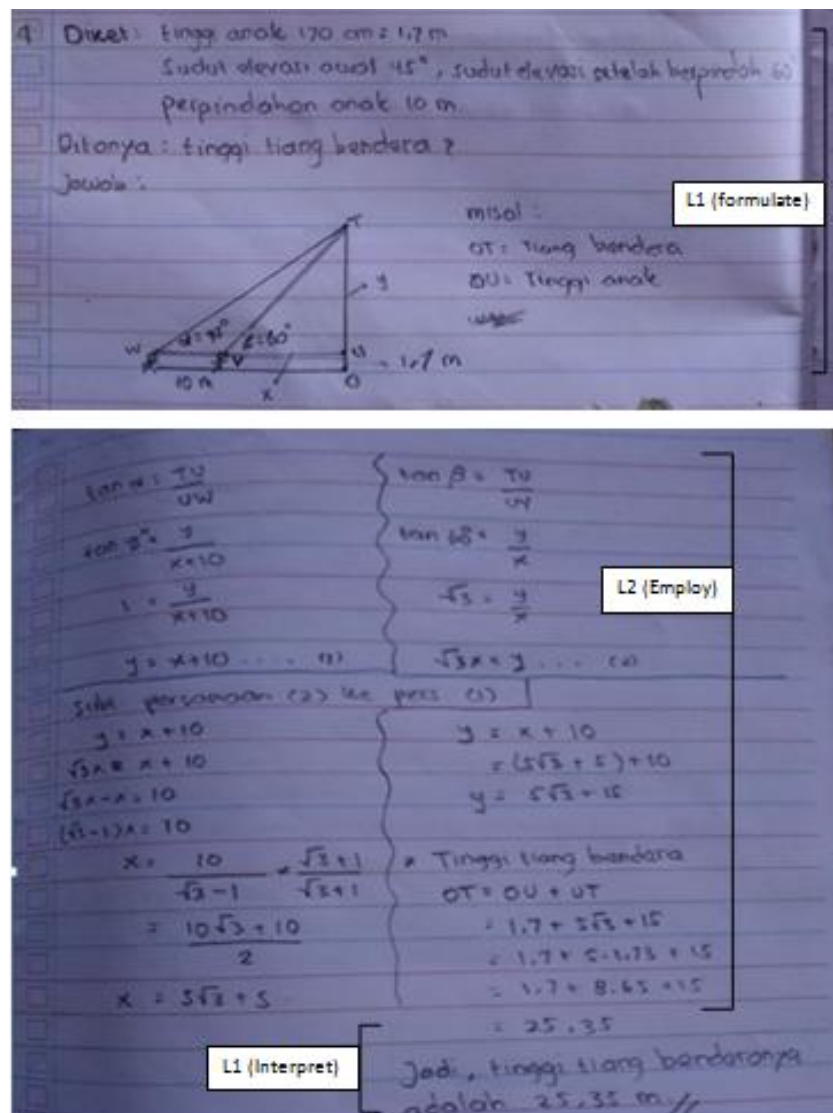 4 Diket: tinggi anak 170 cm = 1,7 m
Sudut elevasi awal 45°, sudut elevasi setelah berpindah 60°
perpindahan anak 10 m
Ditanya: tinggi tiang bendera?
Jawab:
L1 (formulate)
misal:
OT = Tiang bendera
OU = Tinggi anak
T
y
α = 45° β = 60°
W V U
1,7 m
10 m x O
tan α = TU/UW
tan β = TU/UV
tan 45° = y/x+10
tan 60° = y/x
L2 (Employ)
1 = y/x+10
√3 = y/x
y = x+10 .... (1)
√3x = y ... (2)
persamaan (2) ke pers (1)
y = x+10
√3x = x+10
√3x-x = 10
(√3-1)x = 10
x = 10/√3-1 × √3+1/√3+1
= 10√3+10/2
x = 5√3+5
y = x+10
= (5√3+5)+10
y = 5√3+15
* Tinggi tiang bendera
OT = OU + UT
= 1,7 + 5√3 + 15
= 1,7 + 5·1,73 + 15
= 1,7 + 8,65 + 15
= 25,35
L1 (Interpret)
Jadi, tinggi tiang benderanya
adalah 25,35 m //